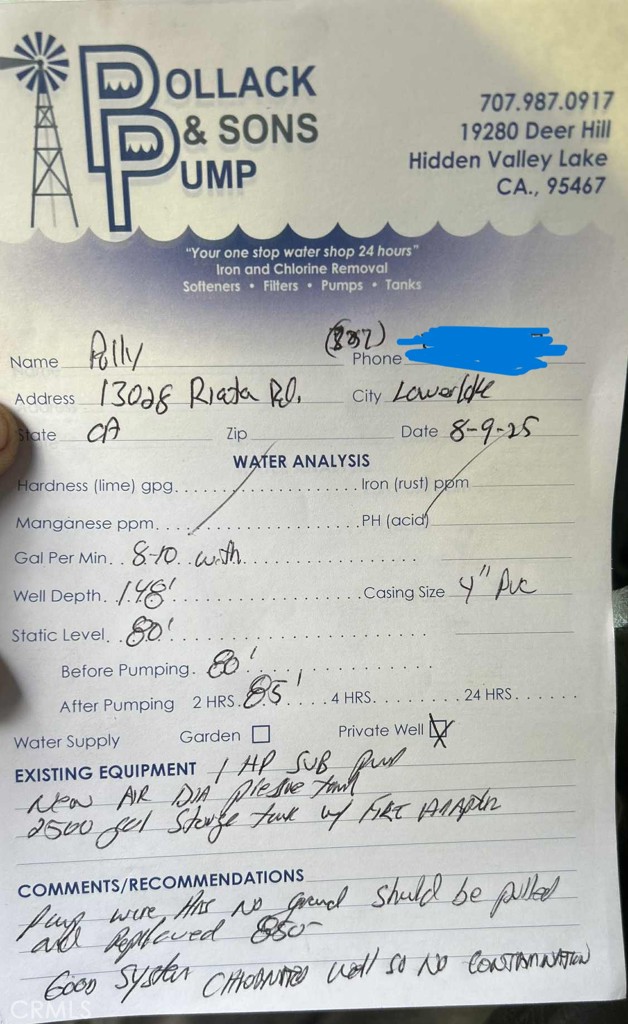 POLLACK
& SONS
PUMP
707.987.0917
19280 Deer Hill
Hidden Valley Lake
CA., 95467
"Your one stop water shop 24 hours"
Iron and Chlorine Removal
Softeners • Filters • Pumps • Tanks
Name Polly Phone
Address 13028 Riata Rd. City Lowerlake
State CA Zip Date 8-9-25
WATER ANALYSIS
Hardness (lime) gpg. Iron (rust) ppm
Manganese ppm. PH (acid)
Gal Per Min. 8-10 with
Well Depth. 148' Casing Size 4" PVC
Static Level. 80'
Before Pumping. 80'
After Pumping 2 HRS. 85' 4 HRS. 24 HRS.
Water Supply Garden Private Well
EXISTING EQUIPMENT 1 HP SUB pump
New AIR DIA pressure tank
2500 gal Storage tank w/ FIRE
COMMENTS/RECOMMENDATIONS
Pump wire Has No ground should be pulled
and Replaced 850-
Good System well so No CONTAMINATION
CRMLS